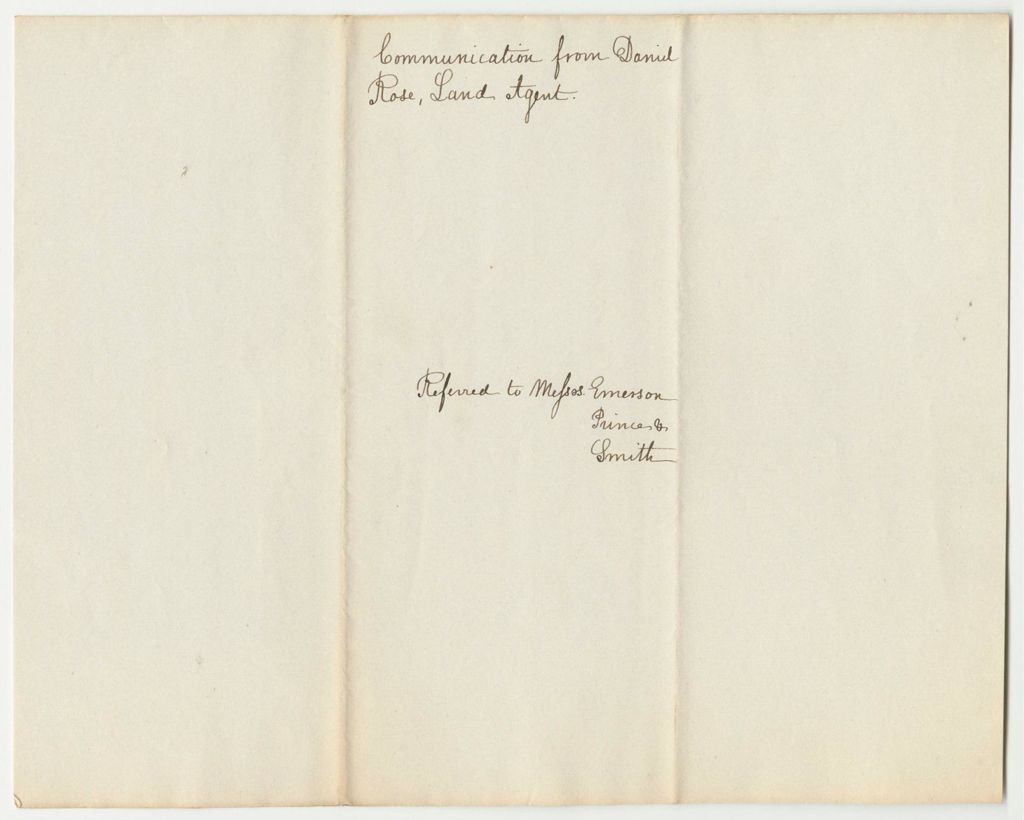 Communication from Daniel
Rose, Land Agent.
Referred to Messrs. Emerson
Prince &
Smith